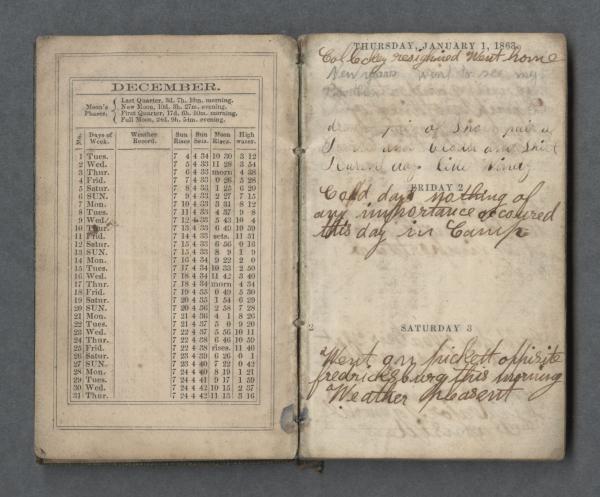 DECEMBER.
Moon's Phases: Last Quarter, 3d. 7h. 10m. morning.
New Moon, 10d. 3h. 27m. evening.
First Quarter, 17d. 6h. 30m. morning.
Full Moon, 24d. 9h. 54m. evening.
No. Days of Week. Weather Record. Sun Rises. Sun Sets. Moon Rises. High water.
1 Tues. 7 4 4 34 10 30 3 12
2 Wed. 7 5 4 33 11 28 3 54
3 Thur. 7 6 4 33 morn 4 38
4 Frid. 7 7 4 33 0 26 5 28
5 Satur. 7 8 4 33 1 25 6 20
6 SUN. 7 9 4 33 2 27 7 15
7 Mon. 7 10 4 33 3 31 8 12
8 Tues. 7 11 4 33 4 37 9 8
9 Wed. 7 12 4 33 5 43 10 4
10 Thur. 7 13 4 33 6 49 10 59
11 Frid. 7 14 4 33 sets. 11 51
12 Satur. 7 15 4 33 6 56 0 16
13 SUN. 7 15 4 33 8 9 1 9
14 Mon. 7 16 4 34 9 22 2 0
15 Tues. 7 17 4 34 10 33 2 50
16 Wed. 7 18 4 34 11 42 3 40
17 Thur. 7 18 4 34 morn 4 34
18 Frid. 7 19 4 35 0 49 5 30
19 Satur. 7 20 4 35 1 54 6 29
20 SUN. 7 20 4 36 2 58 7 28
21 Mon. 7 21 4 36 4 1 8 26
22 Tues. 7 21 4 37 5 0 9 20
23 Wed. 7 22 4 37 5 56 10 11
24 Thur. 7 22 4 38 6 46 10 59
25 Frid. 7 22 4 38 rises. 11 40
26 Satur. 7 23 4 39 6 26 0 1
27 SUN. 7 23 4 40 7 22 0 42
28 Mon. 7 24 4 40 8 19 1 21
29 Tues. 7 24 4 41 9 17 1 59
30 Wed. 7 24 4 42 10 15 2 37
31 Thur. 7 24 4 42 11 13 3 16
THURSDAY, JANUARY 1, 1863.
Col resighned Went home
went to see my
of
and
day
FRIDAY 2
Cold day nothing of
any importance ocoured
this day in Camp
2 SATURDAY 3
Went on pickett opisite
fredricksburg this morning
Weather pleasent